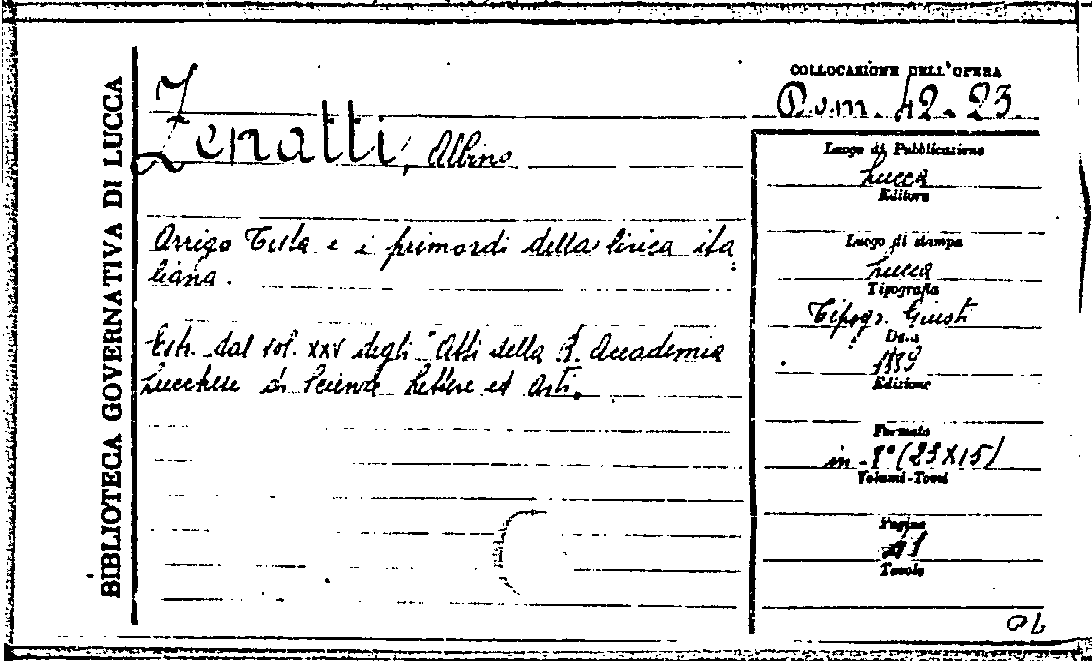 BIBLIOTECA GOVERNATIVA DI LUCCA
Zenatti, Albino
Arrigo Testa e i primordi della lirica ita
liana.
Estr. dal vol. XXV degli "Atti della R. Accademia
Lucchese di Scienze Lettere ed Arti.
COLLOCAZIONE DELL'OPERA
Dom. 42-23.
Luogo di Pubblicazione
Lucca
Editore
Luogo di stampa
Lucca
Tipografia
Tipogr. Giusti
Data
1889
Edizione
Formato
in-8° (23X15)
Volumi-Tomi
Pagine
Tavole